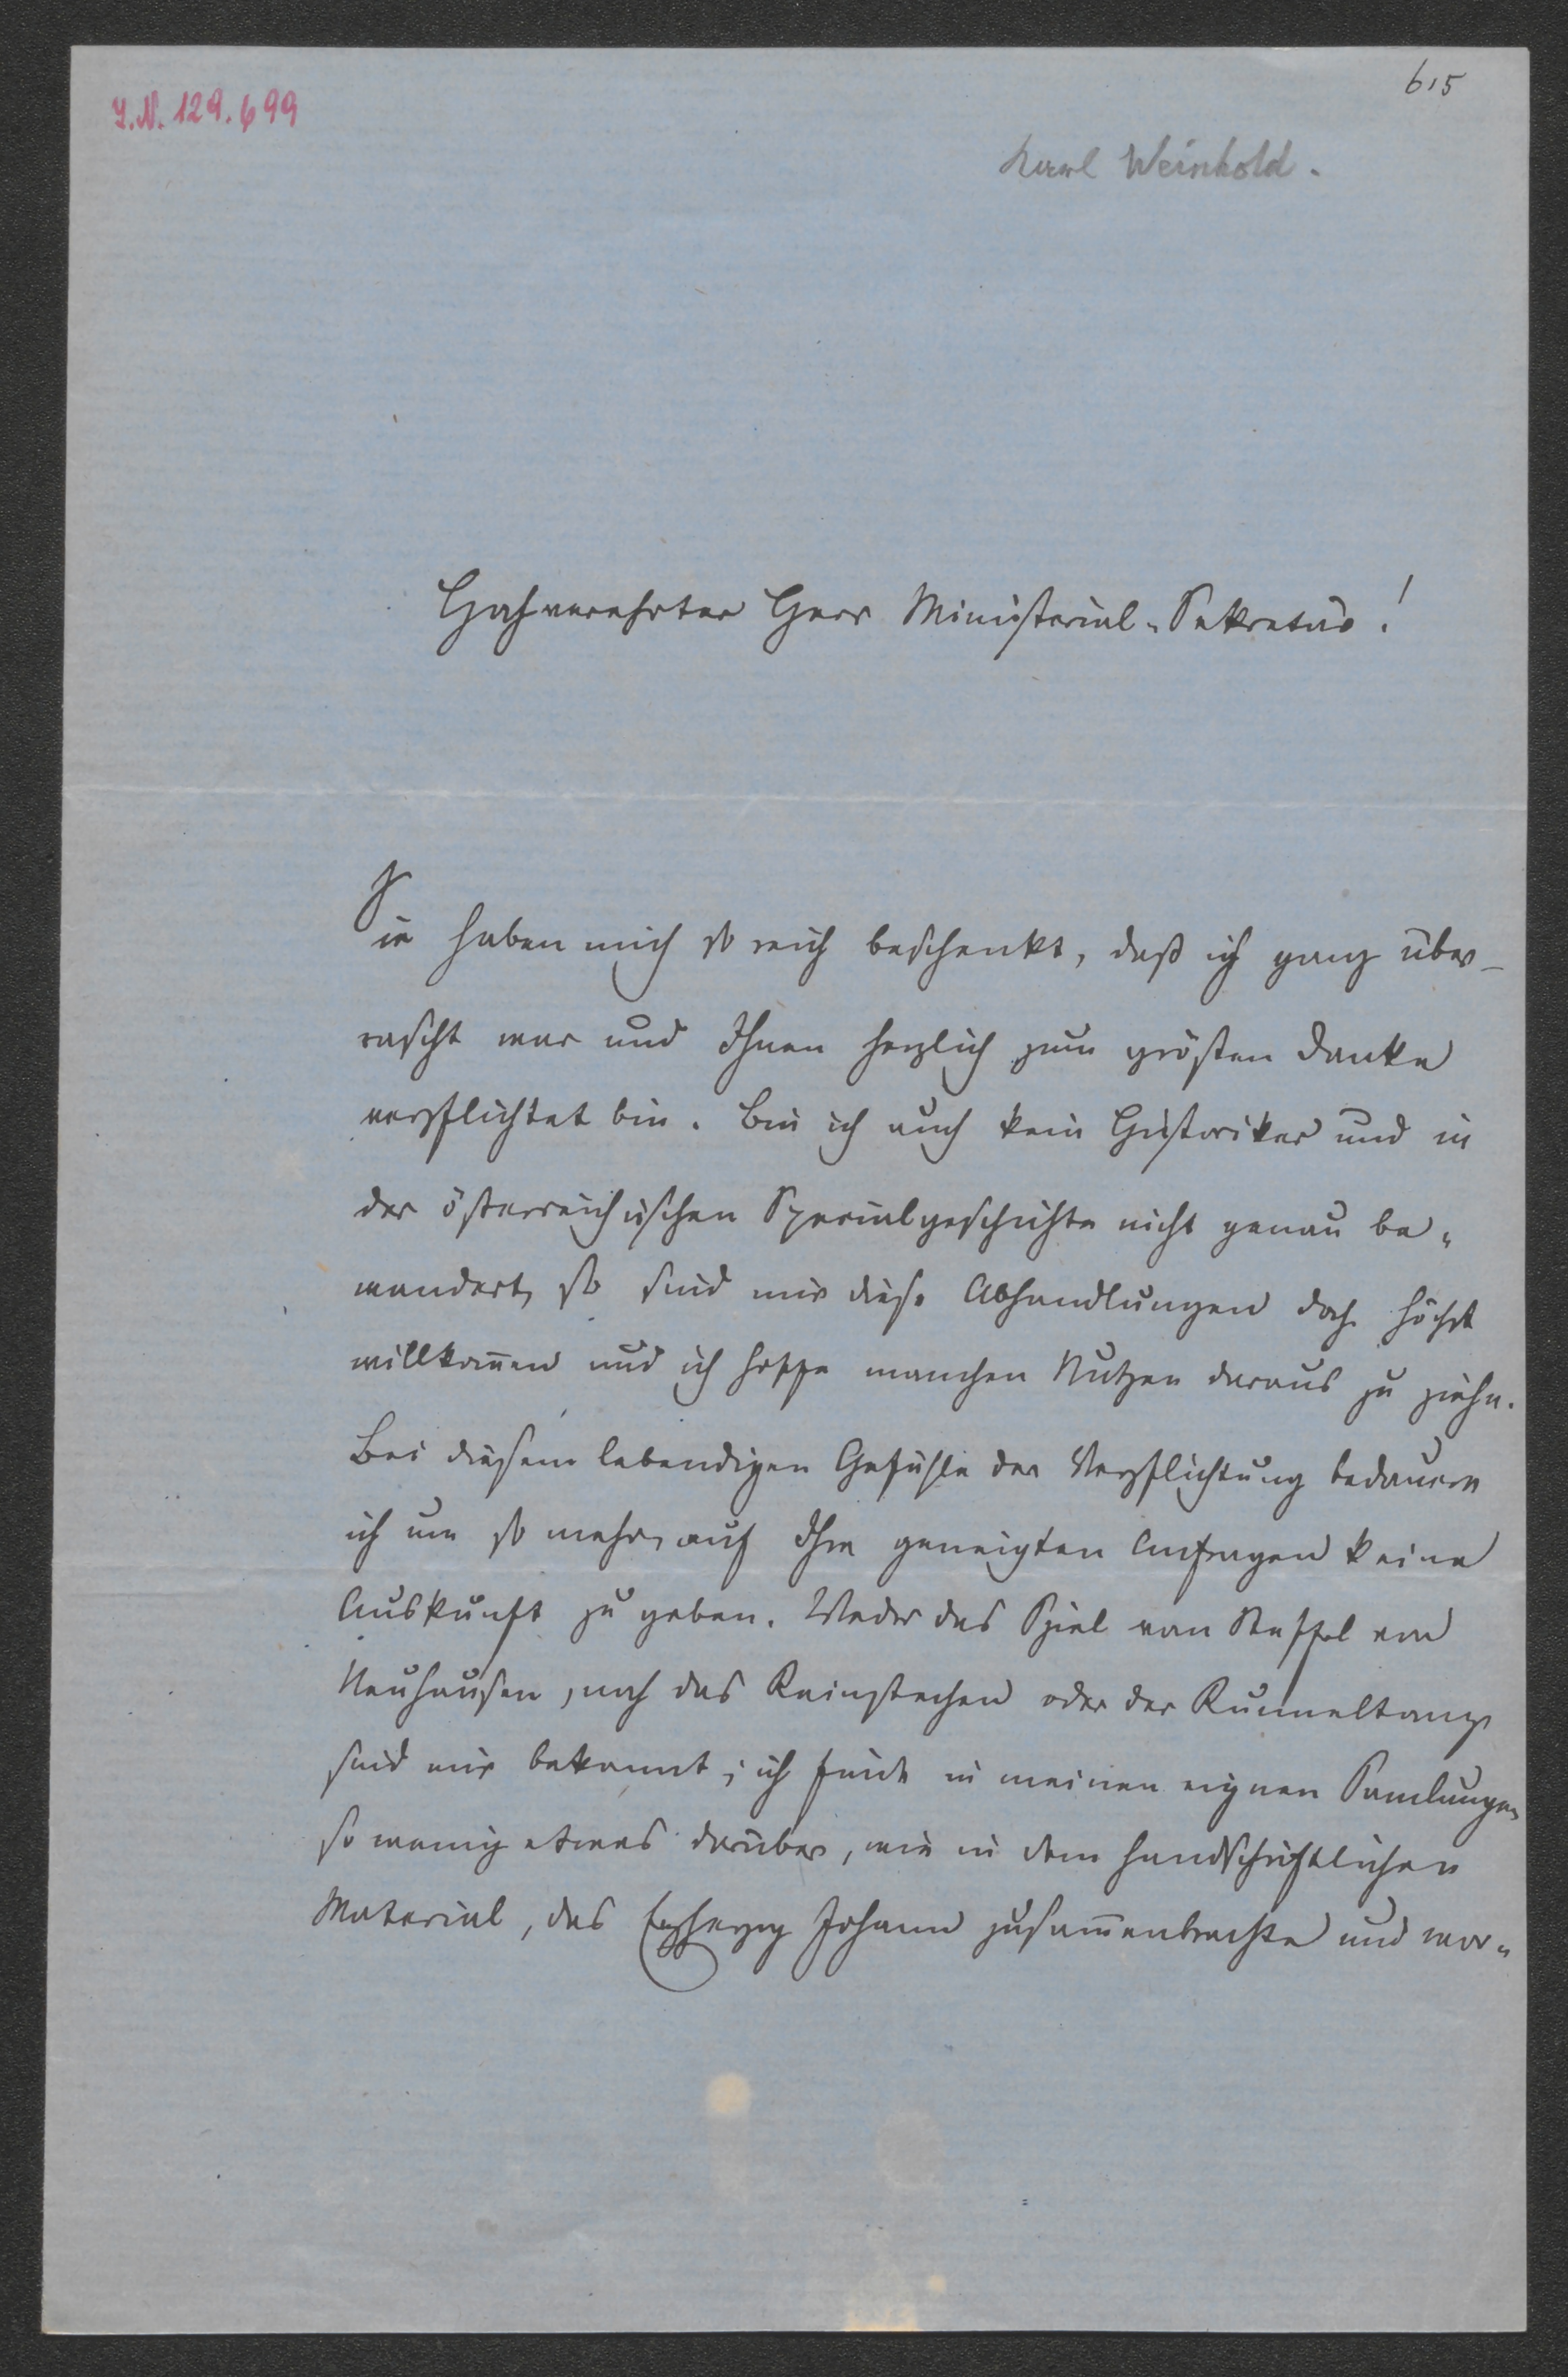 615
I.N. 129.699
Karl Weinhold.
Hochverehrter Herr Ministerial-Sekretär!
Sie haben mich so reich beschenkt, daß ich ganz über-
rascht war und Ihnen herzlich zum grösten Danke
verpflichtet bin. Bin ich auch kein Historiker und in
der österreichischen Specialgeschichte nicht genau be-
wandert, so sind mir diese Abhandlungen doch höchst
willkom̄en und ich hoffe manchen Nutzen daraus zu ziehn.
Bei diesem lebendigen Gefühle der Verpflichtung bedauere
ich um so mehr, auf Ihre geneigten Anfragen keine
Auskunft zu geben. Weder das Spiel von Staffel von
Neuhausen, noch das Reinstechen oder der Rummeltanz
sind mir bekannt; ich finde in meinen eignen Samlungen
so wenig etwas darüber, wie in dem handschriftlichen
Material, das Erzherzog Johann zusam̄enbrachte und wor-